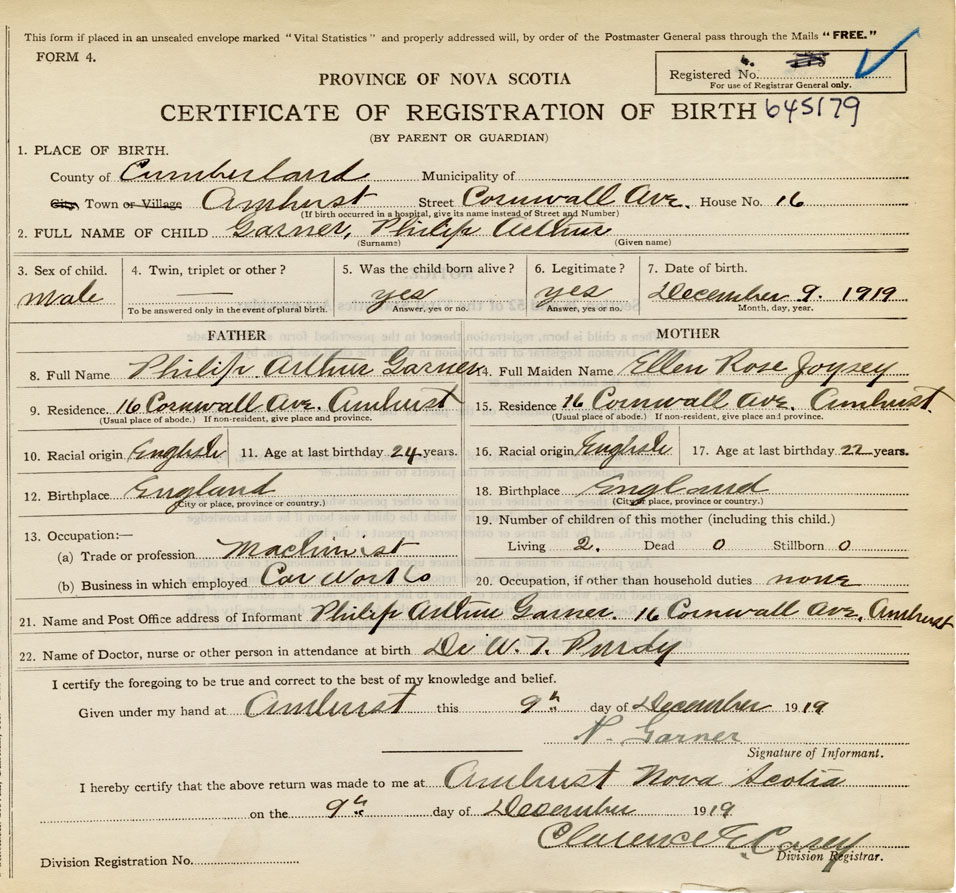 This form if placed in an unsealed envelope marked "Vital Statistics" and properly addressed will, by order of the Postmaster General pass through the Mails "FREE."
FORM 4.
Registered No.
For use of Registrar General only.
PROVINCE OF NOVA SCOTIA
CERTIFICATE OF REGISTRATION OF BIRTH 645179
(BY PARENT OR GUARDIAN)
1. PLACE OF BIRTH.
County of Cumberland Municipality of
City, Town or Village Amherst Street Cornwall Ave. House No. 16
(If birth occurred in a hospital, give its name instead of Street and Number)
2. FULL NAME OF CHILD Garner, Philip Arthur
(Surname) (Given name)
3. Sex of child. 4. Twin, triplet or other? 5. Was the child born alive? 6. Legitimate? 7. Date of birth.
Male — yes yes December 9. 1919
To be answered only in the event of plural birth. Answer, yes or no. Answer, yes or no. Month, day, year.
FATHER MOTHER
8. Full Name Philip Arthur Garner 14. Full Maiden Name Ellen Rose Joysey
9. Residence. 16 Cornwall Ave. Amherst 15. Residence 16 Cornwall Ave. Amherst.
(Usual place of abode.) If non-resident, give place and province. (Usual place of abode.) If non-resident, give place and province.
10. Racial origin English 11. Age at last birthday 24 years. 16. Racial origin English 17. Age at last birthday 22 years.
12. Birthplace England 18. Birthplace England
(City or place, province or country.) (City or place, province or country.)
13. Occupation:— 19. Number of children of this mother (including this child.)
(a) Trade or profession Machinist Living 2. Dead 0 Stillborn 0
(b) Business in which employed Car Works 20. Occupation, if other than household duties none
21. Name and Post Office address of Informant Philip Arthur Garner. 16 Cornwall Ave, Amherst
22. Name of Doctor, nurse or other person in attendance at birth Dr W. T. Purdy
I certify the foregoing to be true and correct to the best of my knowledge and belief.
Given under my hand at Amherst this 9th day of December 1919
P. Garner
Signature of Informant.
I hereby certify that the above return was made to me at Amherst Nova Scotia
on the 9th day of December 1919
Clarence E. Casey
Division Registrar.
Division Registration No.